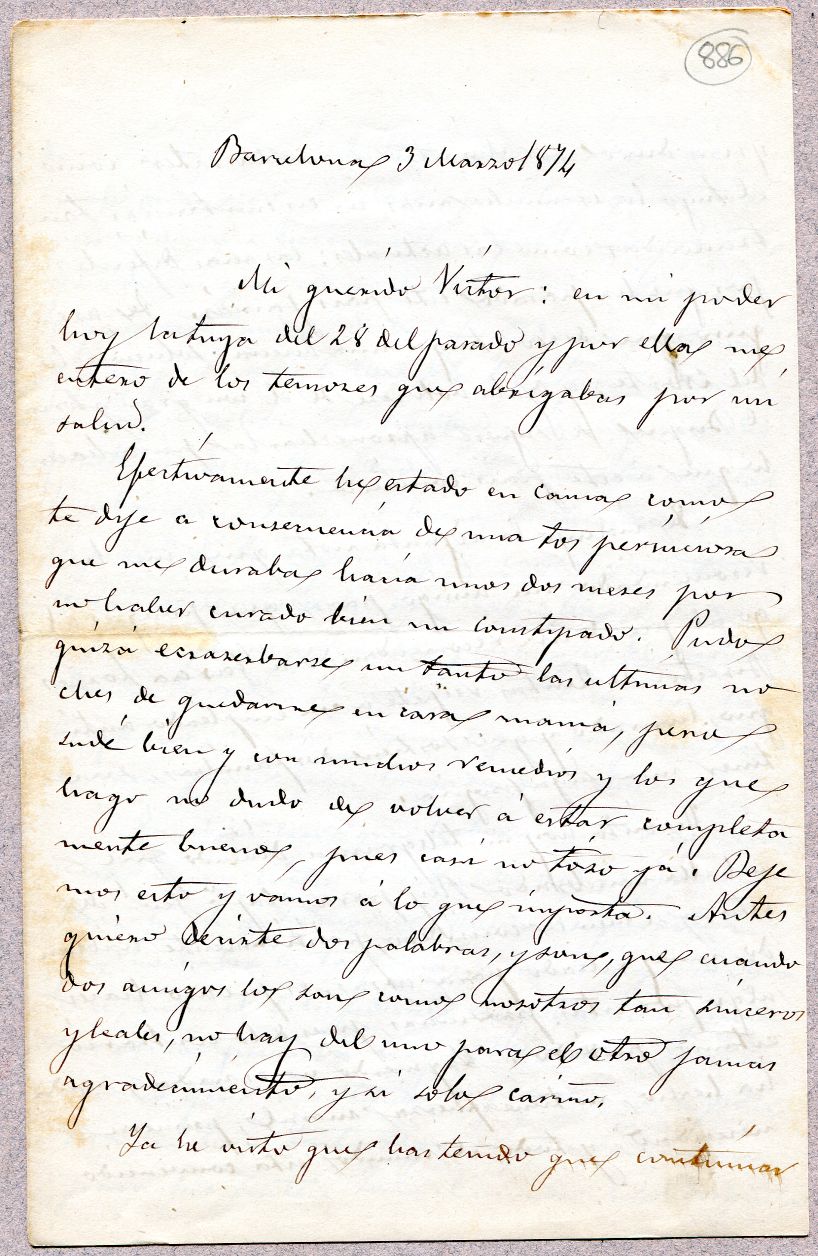 886
Barcelona 3 Marzo 1874
Mi querido Victor: en mi poder
hoy la tuya del 28 del pasado y por ella me
entero de los temores que abrigabas por mi
salud.
Efectivamente he estado en cama como
te dije a consecuencia de una tos perniciosa
que me duraba hacia unos dos meses por
no haber curado bien un constipado. Pudo
quizá exazerbarse un tanto las ultimas no
ches de quedarme en casa mamá, pero
sudé bien y con muchos remedios y los que
hago no dudo de volver á estar completa
mente bueno, pues casi no toso yá. Deje
mos esto y vamos á lo que importa. Antes
quiero decirte dos palabras, y son, que cuando
dos amigos los son como nosotros tan sinceros
y leales, no hay del uno para el otro jamas
agradecimiento, y si solo cariño.
Ya he visto que has tenido que continuar